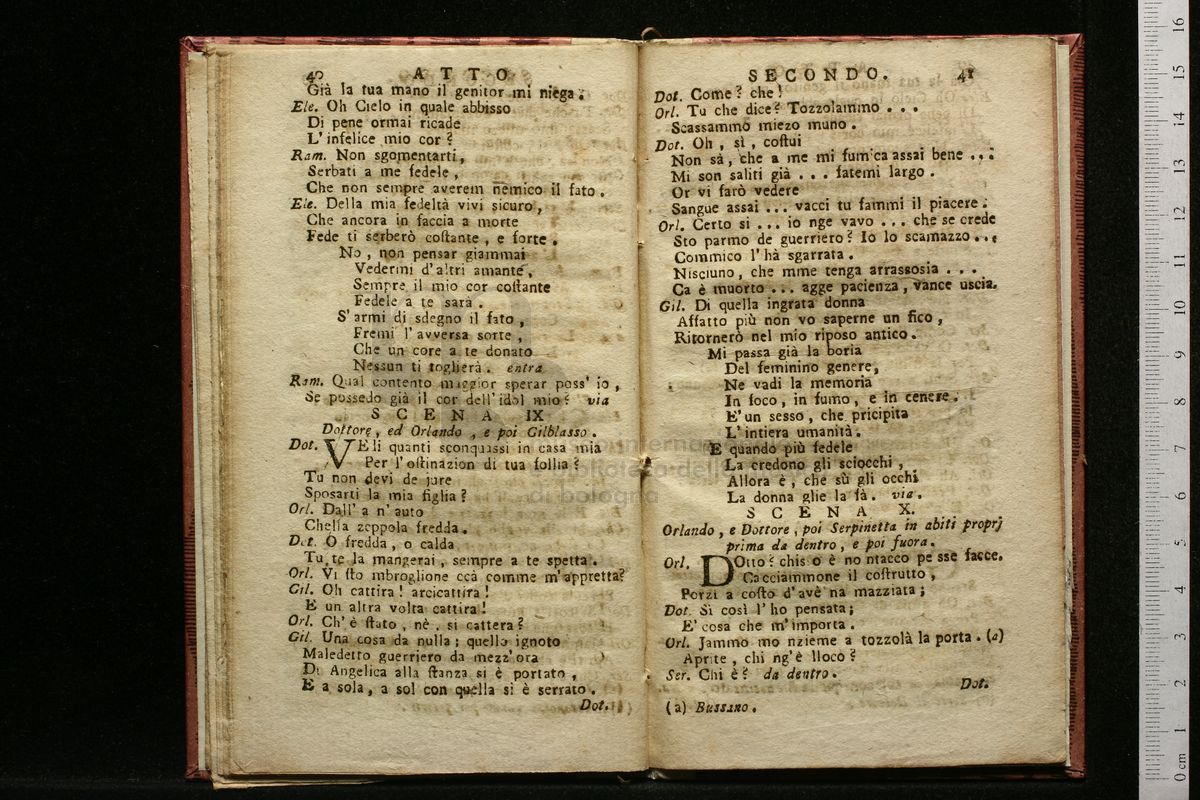 40 ATTO
Già la tua mano il genitor mi niega.
Ele. Oh Cielo in quale abbisso
Di pene ormai ricade
L'infelice mio cor?
Ram. Non sgomentarti,
Serbati a me fedele,
Che non sempre averem nemico il fato.
Ele. Della mia fedeltà vivi sicuro,
Che ancora in faccia a morte
Fede ti serberò costante, e forte.
No, non pensar giammai
Vedermi d'altri amante,
Sempre il mio cor costante
Fedele a te sarà.
S'armi di sdegno il fato,
Fremi l'avversa sorte,
Che un core a te donato
Nessun ti toglierà. entra
Ram. Qual contento maggior sperar poss' io,
Se possedo già il cor dell'idol mio? via
SCENA IX.
Dottore, ed Orlando, e poi Gilblasso.
Dot. VEli quanti sconquassi in casa mia
Per l'ostinazion di tua follia?
Tu non devi de jure
Sposarti la mia figlia?
Orl. Dall' a n'auto
Chella zeppola fredda.
Dot. O fredda, o calda
Tu te la mangerai, sempre a te spetta.
Orl. Vi sto mbroglione ccà comme m'appretta?
Gil. Oh cattira! arcicattira!
E un altra volta cattira!
Orl. Ch'è stato, nè, si cattera?
Gil. Una cosa da nulla; quello ignoto
Maledetto guerriero da mezz'ora
Di Angelica alla stanza si è portato,
E a sola, a sol con quella si è serrato.
Dot.
SECONDO. 41
Dot. Come? che!
Orl. Tu che dice? Tozzolammo...
Scassammo miezo muno.
Dot. Oh, sì, costui
Non sà, che a me mi fumica assai bene...
Mi son saliti già... fatemi largo.
Or vi farò vedere
Sangue assai... vacci tu fammi il piacere.
Orl. Certo si... io nge vavo... che se crede
Sto parmo de guerriero? Io lo scamazzo...
Commico l'hà sgarrata.
Nisciuno, che mme tenga arrassosia...
Ca è muorto... agge pacienza, vance uscia.
Gil. Di quella ingrata donna
Affatto più non vo saperne un fico,
Ritornerò nel mio riposo antico.
Mi passa già la boria
Del feminino genere,
Ne vadi la memoria
In foco, in fumo, e in cenere.
E' un sesso, che pricipita
L'intiera umanità.
E quando più fedele
La credono gli sciocchi,
Allora è, che sù gli occhi
La donna glie la fà. via.
SCENA X.
Orlando, e Dottore, poi Serpinetta in abiti proprj
prima da dentro, e poi fuora.
Orl. DOtto? chisto è no ntacco pe sse facce.
Cacciammone il costrutto,
Porzi a costo d'avè na mazziata;
Dot. Si così l'ho pensata;
E' cosa che m'importa.
Orl. Jammo mo nzieme a tozzolà la porta. (a)
Aprite, chi ng'è lloco?
Ser. Chi è? da dentro.
Dot.
(a) Bussano.